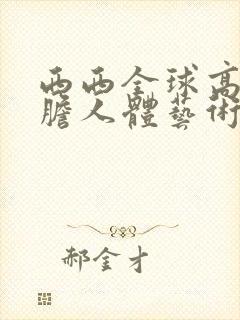 西西全球高
膽人體藝術
郝金才